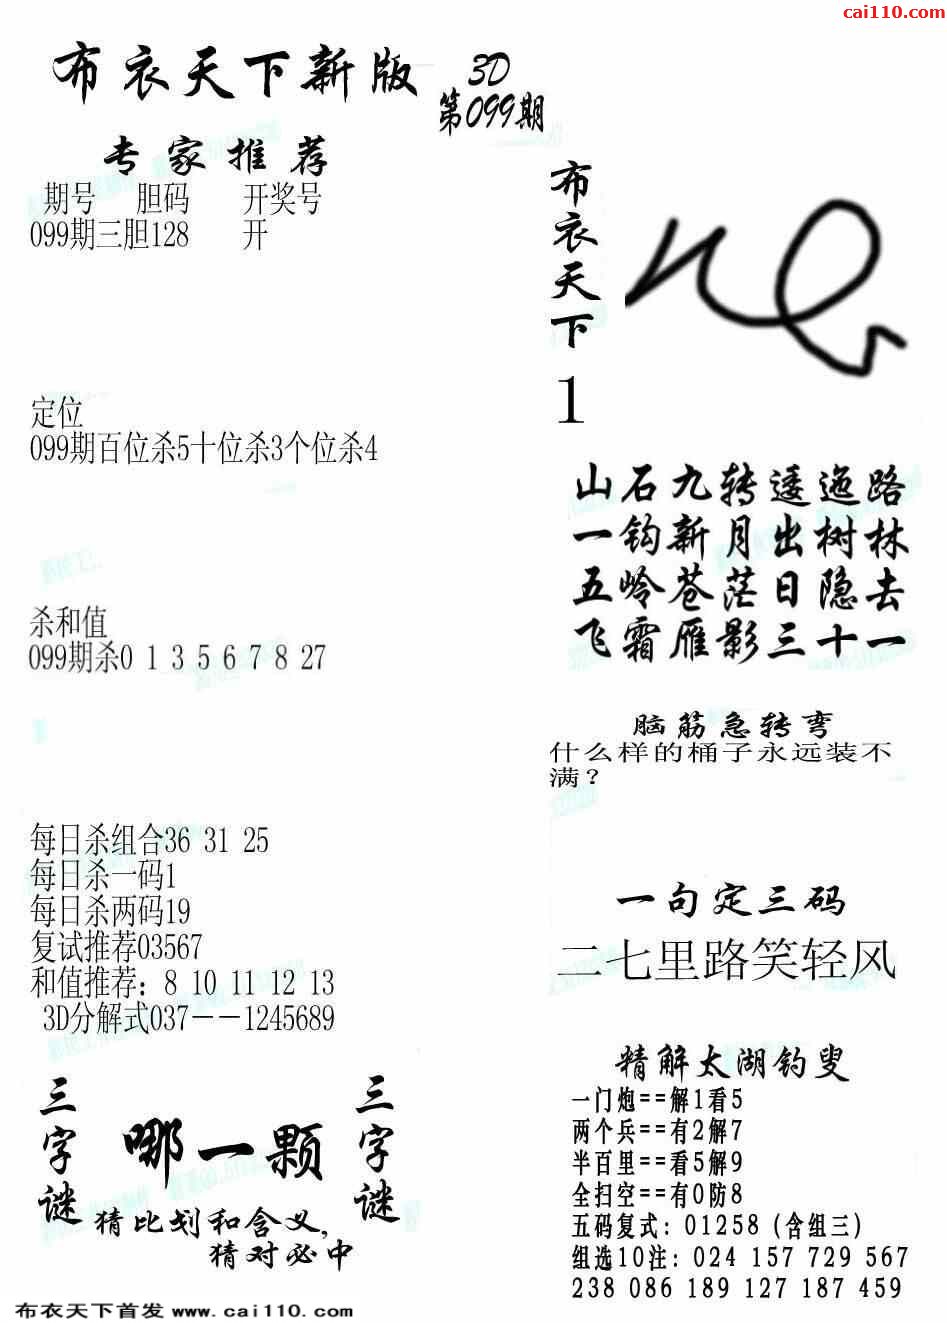 cai110.com
布衣天下新版
3D
第099期
专家推荐
期号 胆码 开奖号
099期三胆128 开
定位
099期百位杀5十位杀3个位杀4
杀和值
099期杀0 1 3 5 6 7 8 27
每日杀组合36 31 25
每日杀一码1
每日杀两码19
复试推荐03567
和值推荐：8 10 11 12 13
3D分解式037－－1245689
三字谜
哪一颗
三字谜
猜比划和含义，
猜对必中
布衣天下
1
山石九转逶迤路
一钩新月出树林
五岭苍茫日隐去
飞霜雁影三十一
脑筋急转弯
什么样的桶子永远装不
满？
一句定三码
二七里路笑轻风
精解太湖钓叟
一门炮==解1看5
两个兵==有2解7
半百里==看5解9
全扫空==有0防8
五码复式：01258（含组三）
组选10注：024 157 729 567
238 086 189 127 187 459
布衣天下首发 www.cai110.com